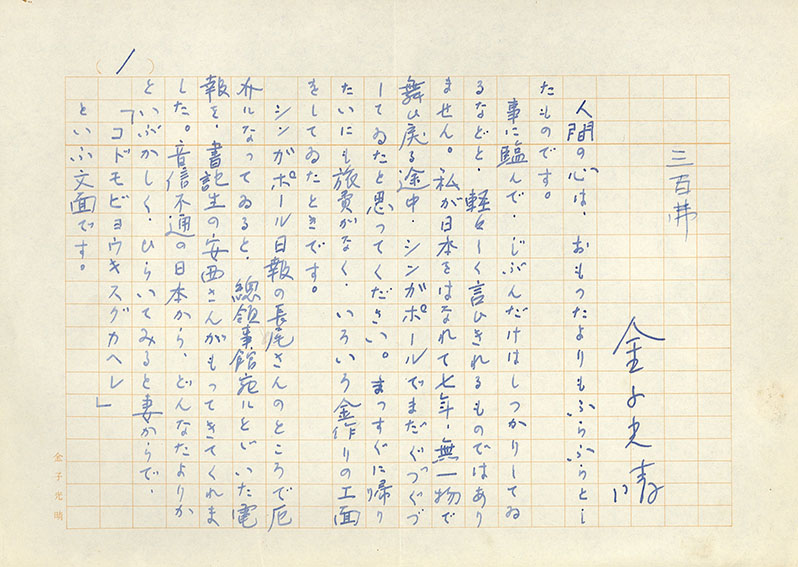 三百
金子光晴
人間の心は、おもつたよりもふらふらとし
たものです。
事に臨んで、じぶんだけはしつかりしてゐ
るなどと、軽々しく言ひきれるものではあり
ません。私が日本をはなれて七年、無一物で
舞ひ戻る途中、シンガポールでまだぐづぐづ
してゐたと思つてください。まつすぐに帰り
たいにも旅費がなく、いろいろ金作りの工面
をしてゐたときです。
シンガポール日報の長尾さんのところで厄
介になつてゐると、總領事館宛にとどいた電
報を、書記生の安西さんがもつてきてくれま
した。音信不通の日本から、どんなたよりか
といぶかしく、ひらいてみると妻からで、
「コドモビョウキスグカヘレ」
といふ文面です。
(1)
金子光晴